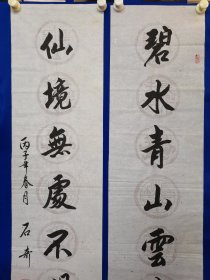 碧水青山雲
仙境無處不
丙子年春月 石奇